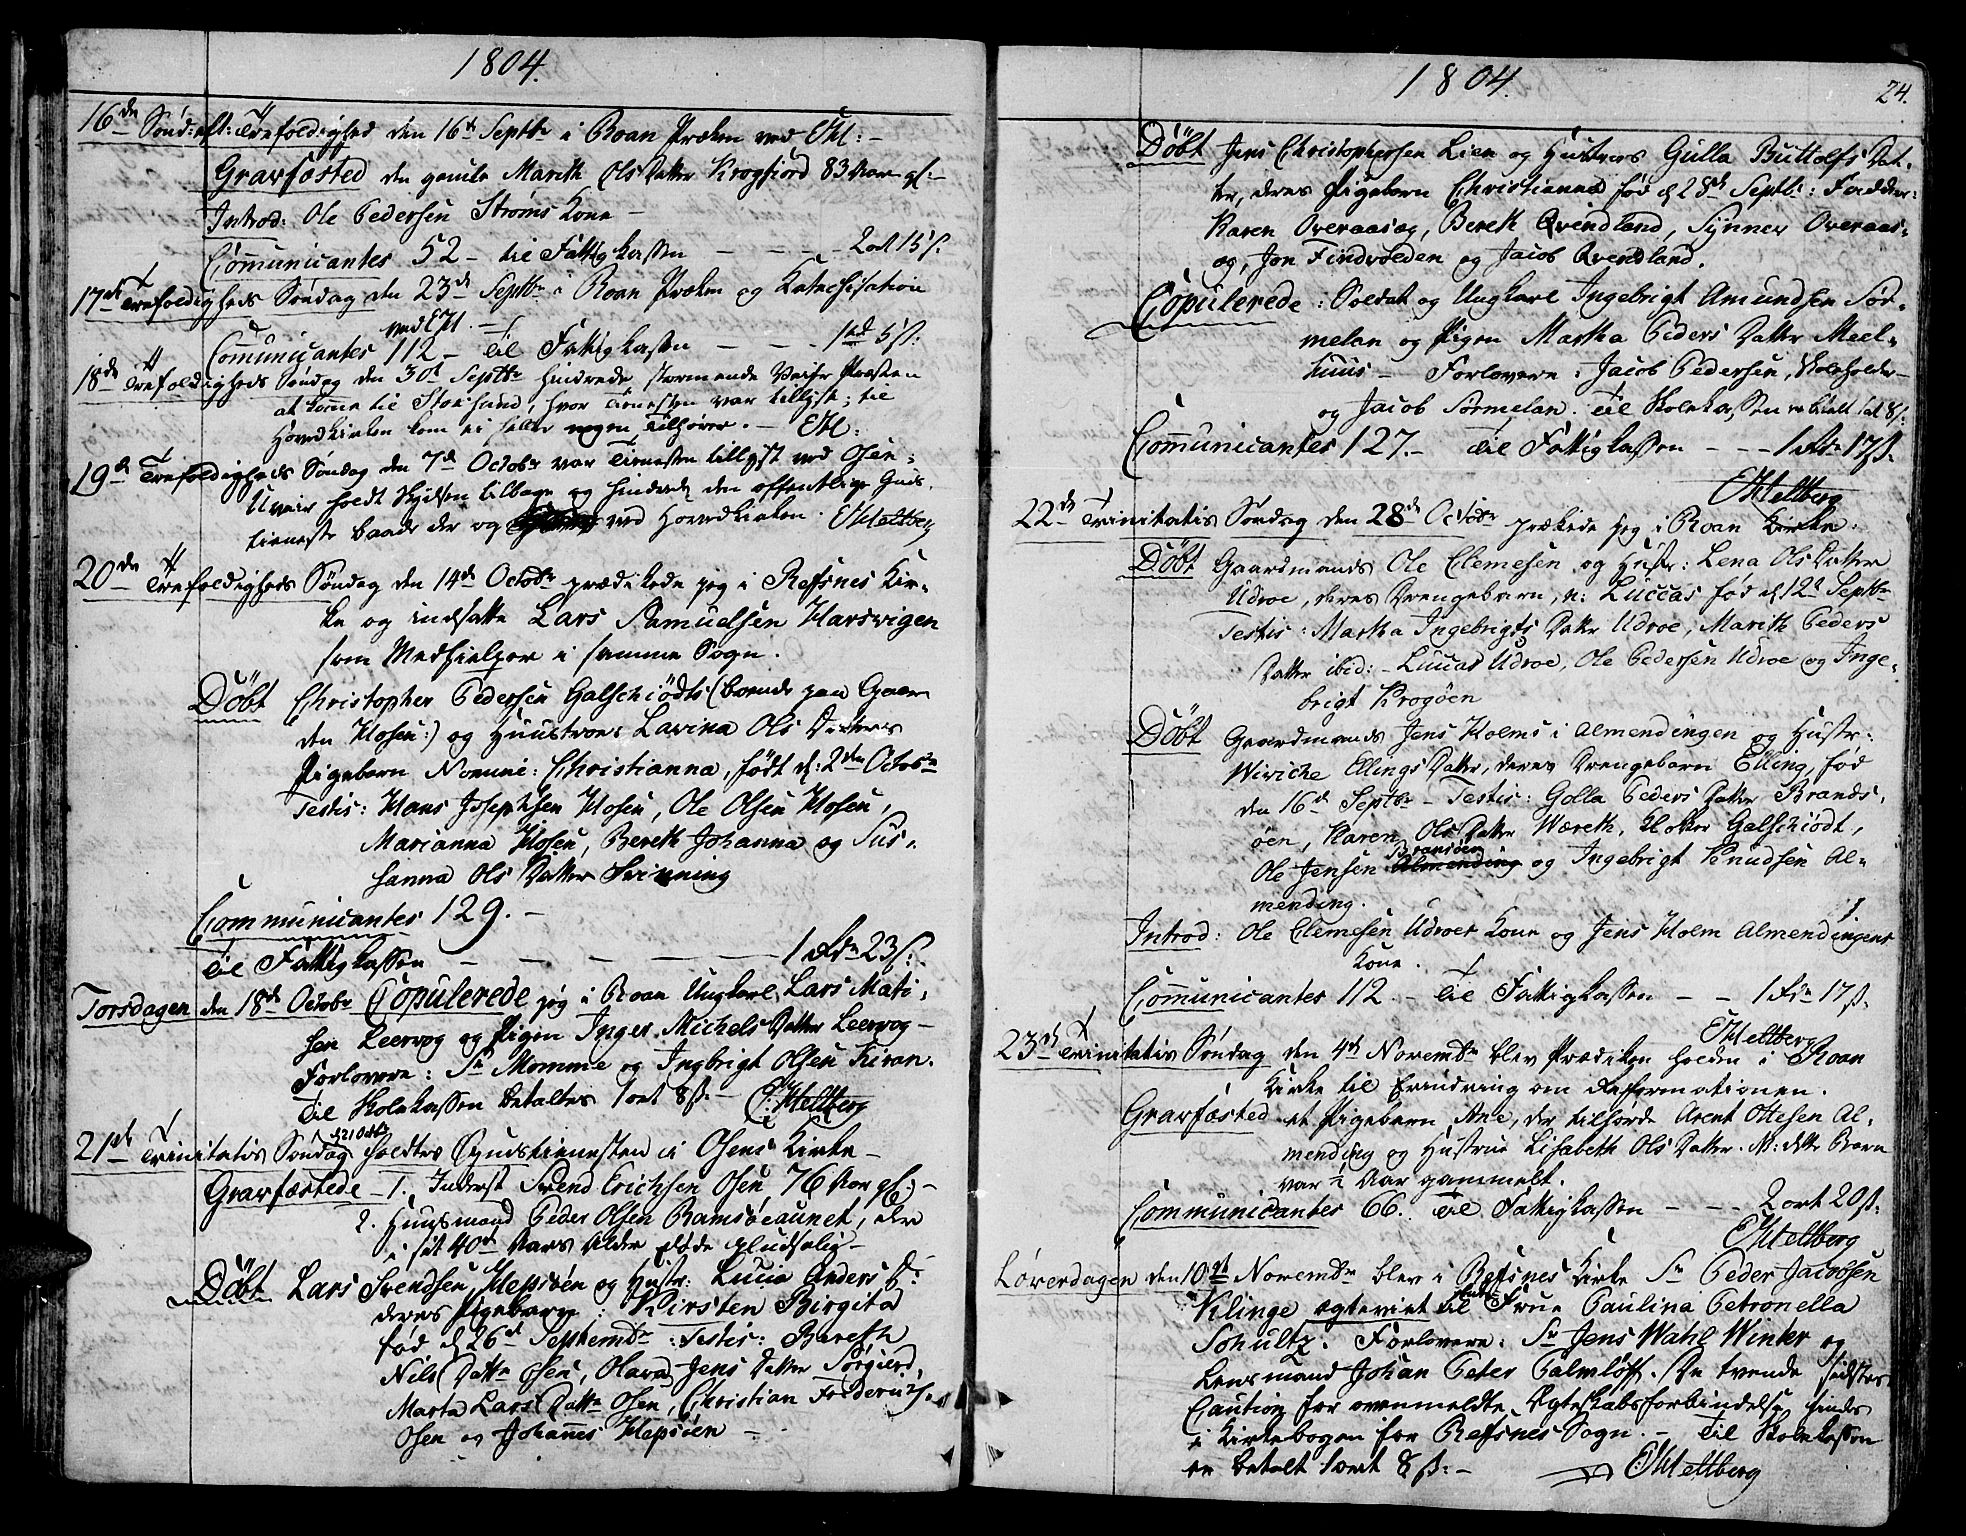 1804.
16de Sønd: eft: Trefoldighed den 16de Septbr i Roan Præken ved EM:
Gravfæsted den gamle Marith Ols Datter Krogfiord 83 Aar gl:
Introd: Ole Pedersen Strøms Kone
Comunicantes 52 - til Fattigkassen - - - 2 ort 15 s:
17de Trefoldigheds Søndag den 23de Septbr i Roan Præken og Katechisation
ved EM.
Comunicantes 112 - Til Fattigkassen - - - 1 5 s:
18de Trefoldigheds Søndag den 30d Septbr hindrede stormende Veir Præsten
at komme til Stoksund, hvor Tienesten var tillyst; til
Hovedkirken kom ei heller nogen Tilhører. - EM:
19de Trefoldigheds Søndag den 7de Octobr var Tienesten tillyst ved Osen;
Uveir holdt Skydsen tilbage og hindrede den offentlige Guds
tieneste baade der og ved Hovedkirken. EMeltberg
20de Trefoldigheds Søndag den 14de Octobr prædikede jeg i Refsnes Kir-
ke og indsatte Lars Samuelsen Harsvigen
som Medhielper i samme Sogn.
Døbt Christopher Pedersen Galschiødts (boende paa Gaar-
den Hosen:) og Huustroes Lavina Ols Datters
Pigebarn Nomine: Christianna, født d: 2den Octobr
Testis: Hans Josephsen Hosen, Ole Olsen Hosen,
Marianna Hosen, Bereth Johanna og Su-
sanna Ols Datter Sninning
Communicantes 129. -
Til Fattigkassen - - - - - 1 Rdr 23 s:
Torsdagen den 18de Octobr Copulerede jeg i Roan Ungkarl Lars Mati-
sen Leervog og Pigen Inger Michels Datter Leervog -
Forlovere: Sr Momme og Ingbrigt Olsen Kiran.
Til Skolekassen betaltes 1 ort 8 s: - E: Meltberg
21de Trinitatis Søndag d 21 Octbr holdtes Gudstienesten i Osens Kirke -
Gravfæstede - 1. Inderst Svend Erichsen Osen, 76 Aar gl: -
2. Huusmand Peder Olsen Ramsøeaunet, ebr
i sit 40de Aars Alder døde pludselig -
Døbt Lars Svendsen Hepsøen og Hustr: Lucia Anders D:
deres Pigebarn: Kirsten Birgita
fød d 26de Septembr: Testis: Bereth
Nils Dattr Osen, Olava Jens Datter Sørgierd,
Marta Lars Dattr Osen, Christian Frederichs:
Osen og Johannes Hepsøen -
1804. 24.
Døbt Jens Christophersen Lien og Hustrues Gulla Buttolfs Dat-
ter, deres Pigebarn Christianna fød d 28de Septbr: Faddere:
Karen Overaasæg, Bereth Qvendland, Synnev Overaas-
æg, Jon Findvolden og Jacob Qvendland.
Copulerede: Soldat og Ungkarl Ingebrigt Amundsen Sør-
melan og Pigen Martha Peders Datter Meel-
huus - Forlovere: Jacob Pedersen, Skoleholder -
og Jacob Sørmelan. Til Skolekassen er betalt 1 ort 8 s:
Communicantes 127. - Til Fattigkassen - - - 1 Rdr 17 s.
EMeltberg
22de Trinitatis Søndag den 28de Octobr prækede jeg i Roan Kirke.
Døbt Gaardmands Ole Clemesen og Hustr: Lena Ols Datter
Udroe, deres Drengebarn, n: Luccas fød d 12te Septbr
Testis: Martha Ingebrigts Datter Udroe, Marith Peders
Datter ibid: - Luccas Udroe, Ole Pedersen Udroe og Inge-
brigt Krogøen
Døbt Gaardmands Jens Holms i Almendingen og Hustr:
Wiviche Ellings Datter, deres Drengebarn Elling, fød
den 16de Septbr - Testis: Golla Peders Datter Brands-
øen, Karen Ols Datter Wæreth, Klokker Galschiødt,
Bransøen
Ole Jensen Almending og Ingebrigt Knudsen Al-
mending.
Introd: Ole Clemesen Udroes Kone og Jens Holm Almendingens
Kone.
Communicantes 112. - Til Fattigkassen - - 1 Rdr 17 s.
EMeltberg
23de Trinitatis Søndag den 4de Novembr blev Prædiken holden i Roan
Kirke til Erindring om Reformationen.
Gravfæsted et Pigebarn, Ane, der tilhørde Arent Ottesen Al-
mending og Hustrue Lisabeth Ols Datter. N: dette Barn
var ½ Aar gammelt.
Communicantes 66. Til Fattigkassen - - - 2 ort 20 s:
EMeltberg
Løverdagen den 10de Novembr blev i Refsnes Kirke Sr Peder Jacobsen
Klinge ægteviet til Frue Paulina Petronella
Schultz. Forlovere: Sr Jens Wahl Winter og
Lensmand Johan Peter Palmløff. De tvende sidstes
Caution for ovenmeldte Ægteskabsforbindelse findes
i Kirkebogen for Refsnes Sogn. - Til Skolekassen
er betalt 1 ort 8 s: - EMeltberg